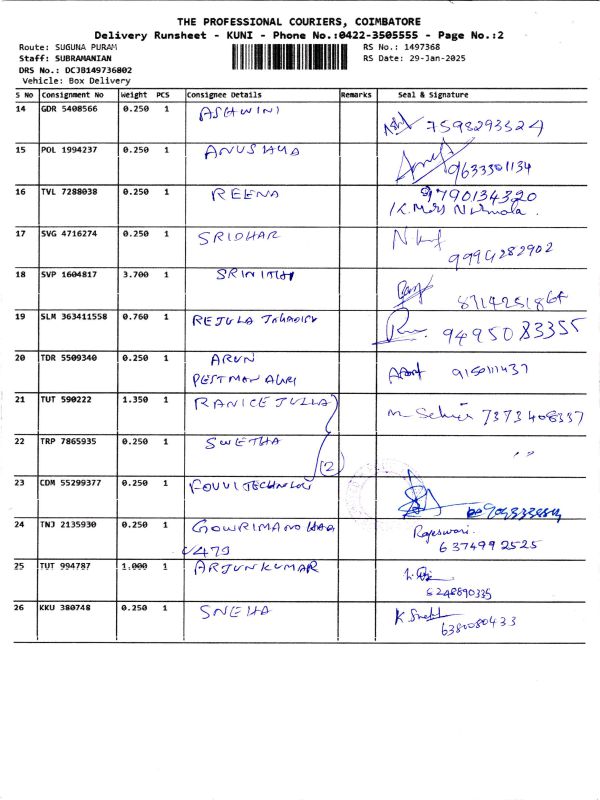 THE PROFESSIONAL COURIERS, COIMBATORE
Delivery Runsheet - KUNI - Phone No.:0422-3505555 - Page No.:2
Route: SUGUNA PURAM RS No.: 1497368
Staff: SUBRAMANIAN RS Date: 29-Jan-2025
DRS No.: DCJB149736802
Vehicle: Box Delivery
S No Consignment No Weight PCS Consignee Details Remarks Seal & Signature
14 GDR 5408566 0.250 1 ASHWINI 7598293524
15 POL 1994237 0.250 1 ANUSHYA 9633301134
16 TVL 7288038 0.250 1 REENA 9790134320
Nirmala.
17 SVG 4716274 0.250 1 SRIDHAR 9994282902
18 SVP 1604817 3.700 1 SRINITHI
19 SLM 363411558 0.760 1 REJULA 9495083355
20 TDR 5509340 0.250 1 ARUN
PESTMAN
21 TUT 590222 1.350 1 7373408337
22 TRP 7865935 0.250 1 SWETHA 〃
(2)
23 CDM 55299377 0.250 1
24 TNJ 2135930 0.250 1 Rajeswari.
6374992525
25 TUT 994787 1.000 1 ARJUNKUMAR
6248890335
26 KKU 380748 0.250 1 SNEHA K Sneha
6380080433